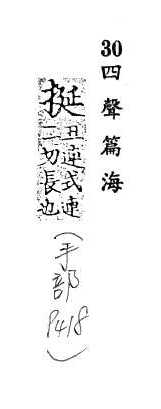 30四聲篇海
挻丑連式連
二切長也
(手部
P418)